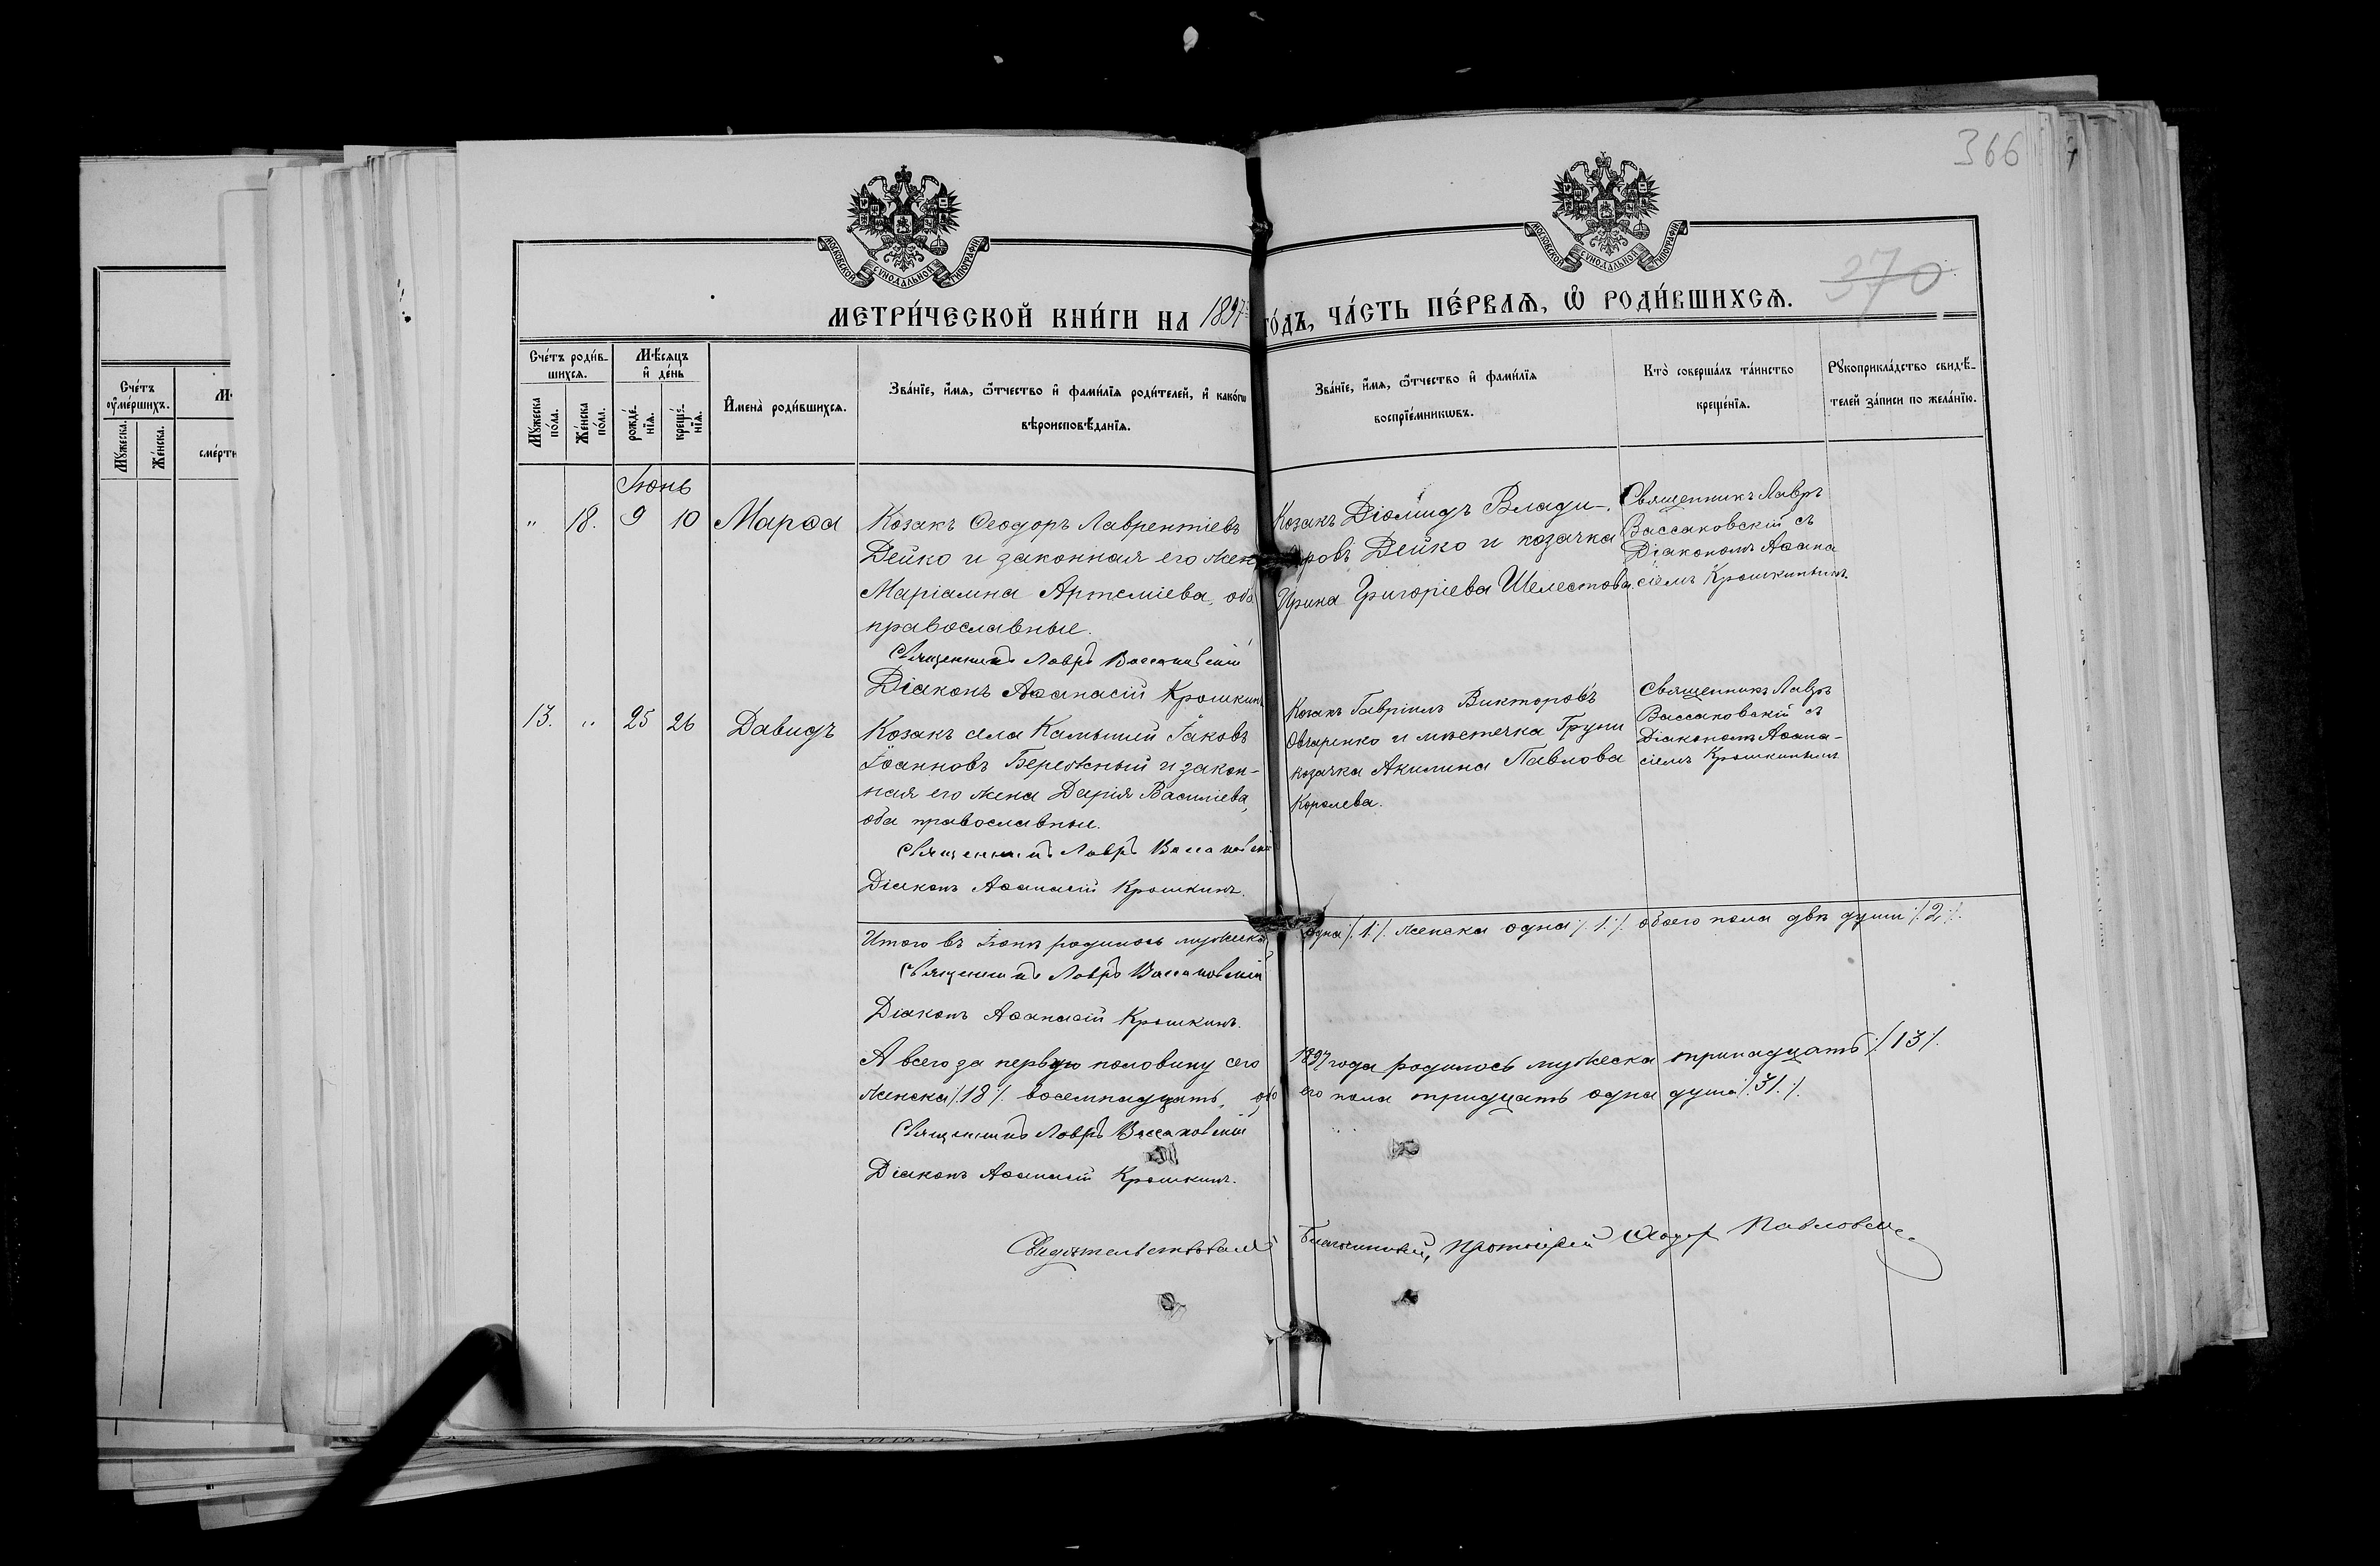 366
370
МОСКОВСКОЙ СУНОДАЛЬНОЙ ТИПОГРАФІИ
МОСКОВСКОЙ СУНОДАЛЬНОЙ ТИПОГРАФІИ
МЕТРИ́ЧЕСКОЙ КНИ́ГИ НА 1897 ГО́ДЪ, ЧА́СТЬ ПЕ́РВАѦ, Ѽ РОДИ́ВШИХСѦ.
Сче́тъ
оуме́ршихъ.
Му́жеска.
Же́нска.
сме́рти
Сче́тъ роди́в-
шихсѧ.
Му́жеска
по́ла.
Же́нска
пол.
Мѣ́сѧцъ
и҆ де́нь
рожде́-
нїѧ.
креще́-
нїѧ.
И҆мена̀ роди́вшихсѧ.
Зва́нїе, и҆́мѧ, ѻ҆́тчество и҆ фами́лїѧ роди́телей, и҆ како́гѡ
вѣроисповѣ́данїѧ.
Зва́нїе, и҆́мѧ, ѻ҆́тчество и҆ фами́лїѧ
воспрїе́мникѡвъ.
Кто̀ соверша́лъ та́инство
креще́нїѧ.
Рꙋкоприкла́дство свидѣ́-
телей за́писи по жела́нїю.
Іюнь
" 18. 9 10 Марѳа
Козакъ Ѳеодоръ Лаврентіевъ
Дейко и законная его жен
Маріамна Артеміева, оба
православные.
Священникъ Лавръ Вассаковскій
Діаконъ Аѳанасій Крошкинъ
Козакъ Діомидъ Влади-
ровъ Дейко и козачка
Ирина Григоріева Шелестова.
Священникъ Лавръ
Вассаковскій съ
Діакономъ Аѳана
сіемъ Крошкинымъ.
13. " 25 26 Давидъ
Козакъ села Камышни Іаковъ
Іоанновъ Бережный и закон-
ная его жена Дарія Василіева,
оба православные.
Священникъ Лавръ Вассаковскій
Діаконъ Аѳанасій Крошкинъ.
Козакъ Гавріилъ Викторовъ
Овчаренко и мѣстечка Груни
козачка Акилина Павлова
Королева.
Священникъ Лавръ
Вассаковскій съ
Діакономъ Аѳана-
сіемъ Крошкинымъ
Итого въ Іюнѣ родилось мужеска одна /.1./. женска одна /.1./. обоего пола двѣ души /.2./.
Священникъ Лавръ Вассаковскій
Діаконъ Аѳанасій Крошкинъ.
А всего за первую половину сего 1897 года родилось мужеска тринадцать /.13/.
женска /.18/. восемнадцать, обо его пола тридцать одна душа /.31./.
Священникъ Лавръ Вассаковскій
Діаконъ Аѳанасій Крошкинъ.
Свидѣтельствовалъ Благочинный, Протоіерей Ѳеодоръ Павловскі